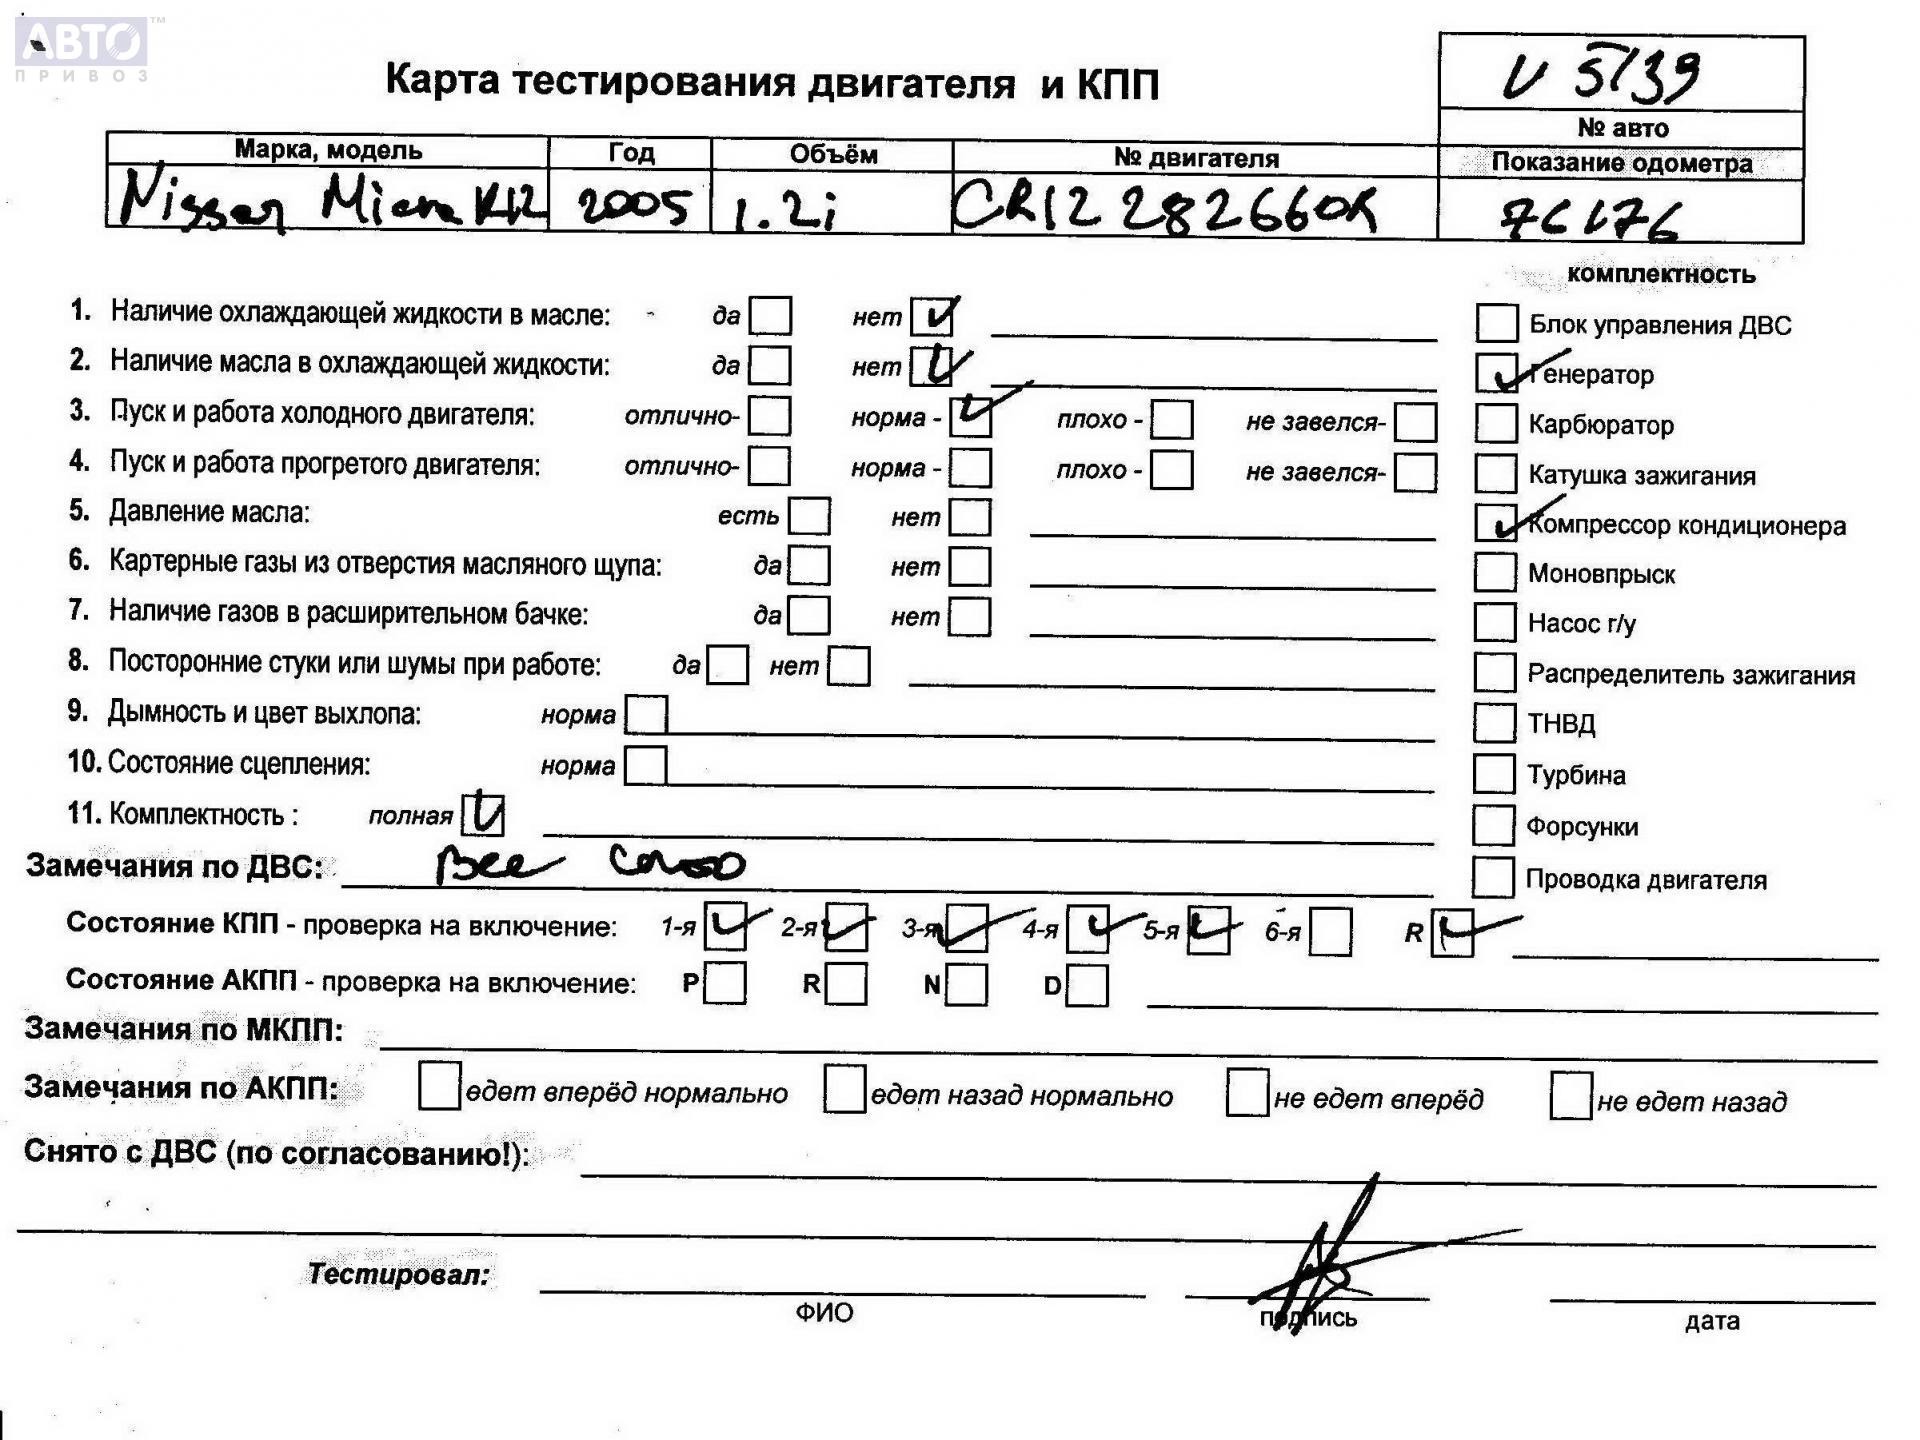 АВТО™
ПРИВОЗ
Карта тестирования двигателя и КПП
V 5139
№ авто
Марка, модель Год Объём № двигателя Показание одометра
Nissan Micra K12 2005 1.2i CR12 282660R
комплектность
1. Наличие охлаждающей жидкости в масле: да нет Блок управления ДВС
2. Наличие масла в охлаждающей жидкости: да нет Генератор
3. Пуск и работа холодного двигателя: отлично- норма - плохо - не завелся- Карбюратор
4. Пуск и работа прогретого двигателя: отлично- норма - плохо - не завелся- Катушка зажигания
5. Давление масла: есть нет Компрессор кондиционера
6. Картерные газы из отверстия масляного щупа: да нет Моновпрыск
7. Наличие газов в расширительном бачке: да нет Насос г/у
8. Посторонние стуки или шумы при работе: да нет Распределитель зажигания
9. Дымность и цвет выхлопа: норма ТНВД
10. Состояние сцепления: норма Турбина
11. Комплектность : полная Форсунки
Замечания по ДВС: Все Проводка двигателя
Состояние КПП - проверка на включение: 1-я 2-я 3-я 4-я 5-я 6-я R
Состояние АКПП - проверка на включение: P R N D
Замечания по МКПП:
Замечания по АКПП: едет вперёд нормально едет назад нормально не едет вперёд не едет назад
Снято с ДВС (по согласованию!):
Тестировал:
ФИО подпись дата